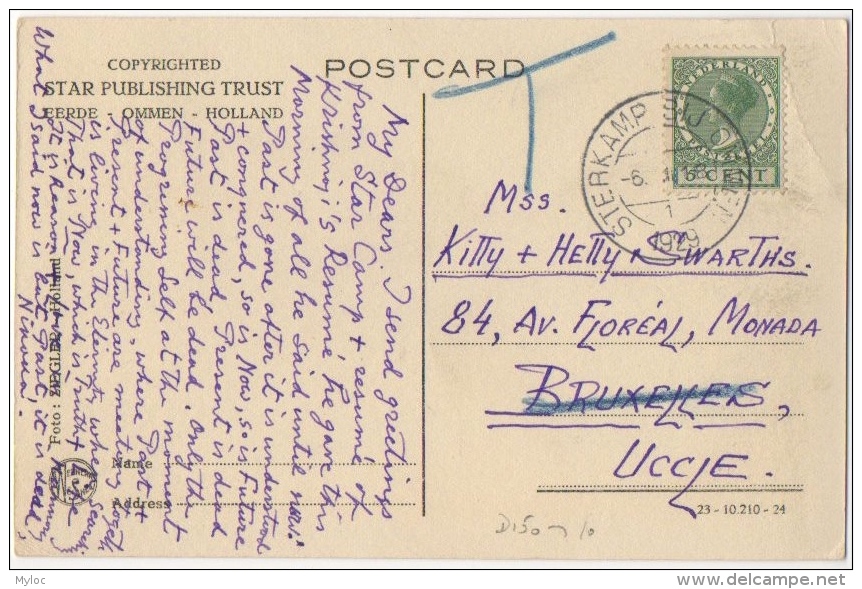 COPYRIGHTED
STAR PUBLISHING TRUST
EERDE - OMMEN - HOLLAND
POSTCARD
NEDERLAND
5 CENT
STERKAMP BIJ OMMEN
-6.
1929
1
My Dears. I send greetings
from Star Camp + resumé of
Krishnaji's Resumé he gave this
Morning of all he said until now:
Past is gone after it is understood
+ conquered, so is Now, so is Future
Past is dead Present is dead
Future will be dead. Only the
Progressing Self at the moment
of understanding, where Past +
Present + Future are meeting together
is living in the Eternity where
That is Now, which is Truth + Life
It is Reason +
What I said now is but Past, it is dead,
Mss.
Kitty + Hetty Swarths.
84, Av. Floréal, Monada
BRUXELLES,
UCCLE.
Foto: ZIEGLER - Holland
Name
Address
23 - 10.210 - 24
T
Myloc
delcampe.net